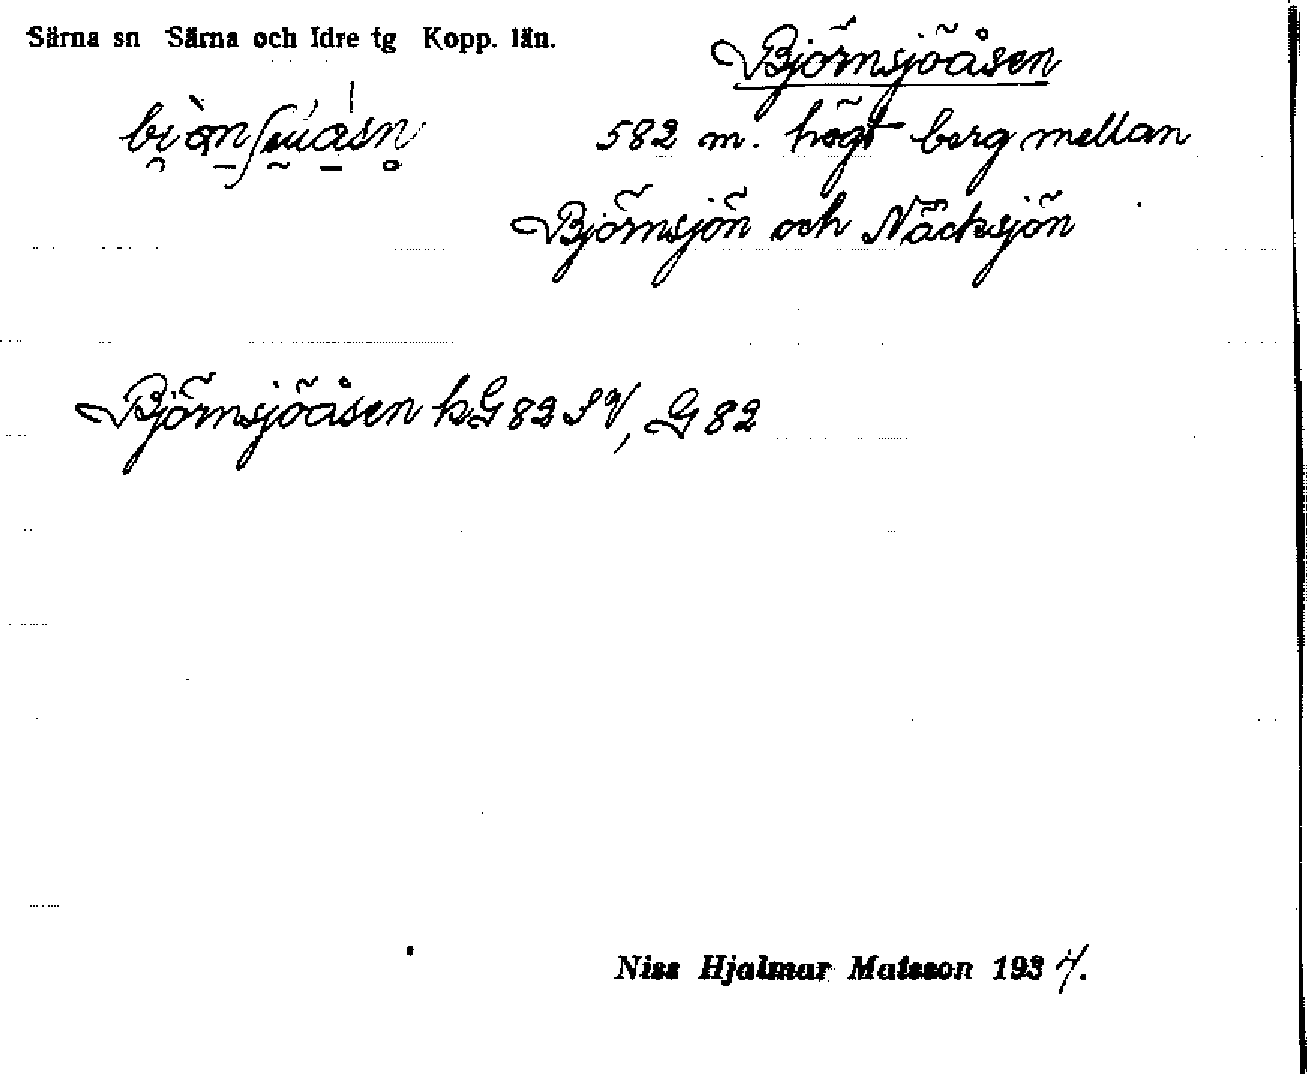 Särna sn Särna och Idre tg Kopp. län.
Björnsjöåsen
582 m. högt berg mellan
Björnsjön och Näcksjön
Björnsjöåsen kG82SV, G82
Niss Hjalmar Matsson 1934.